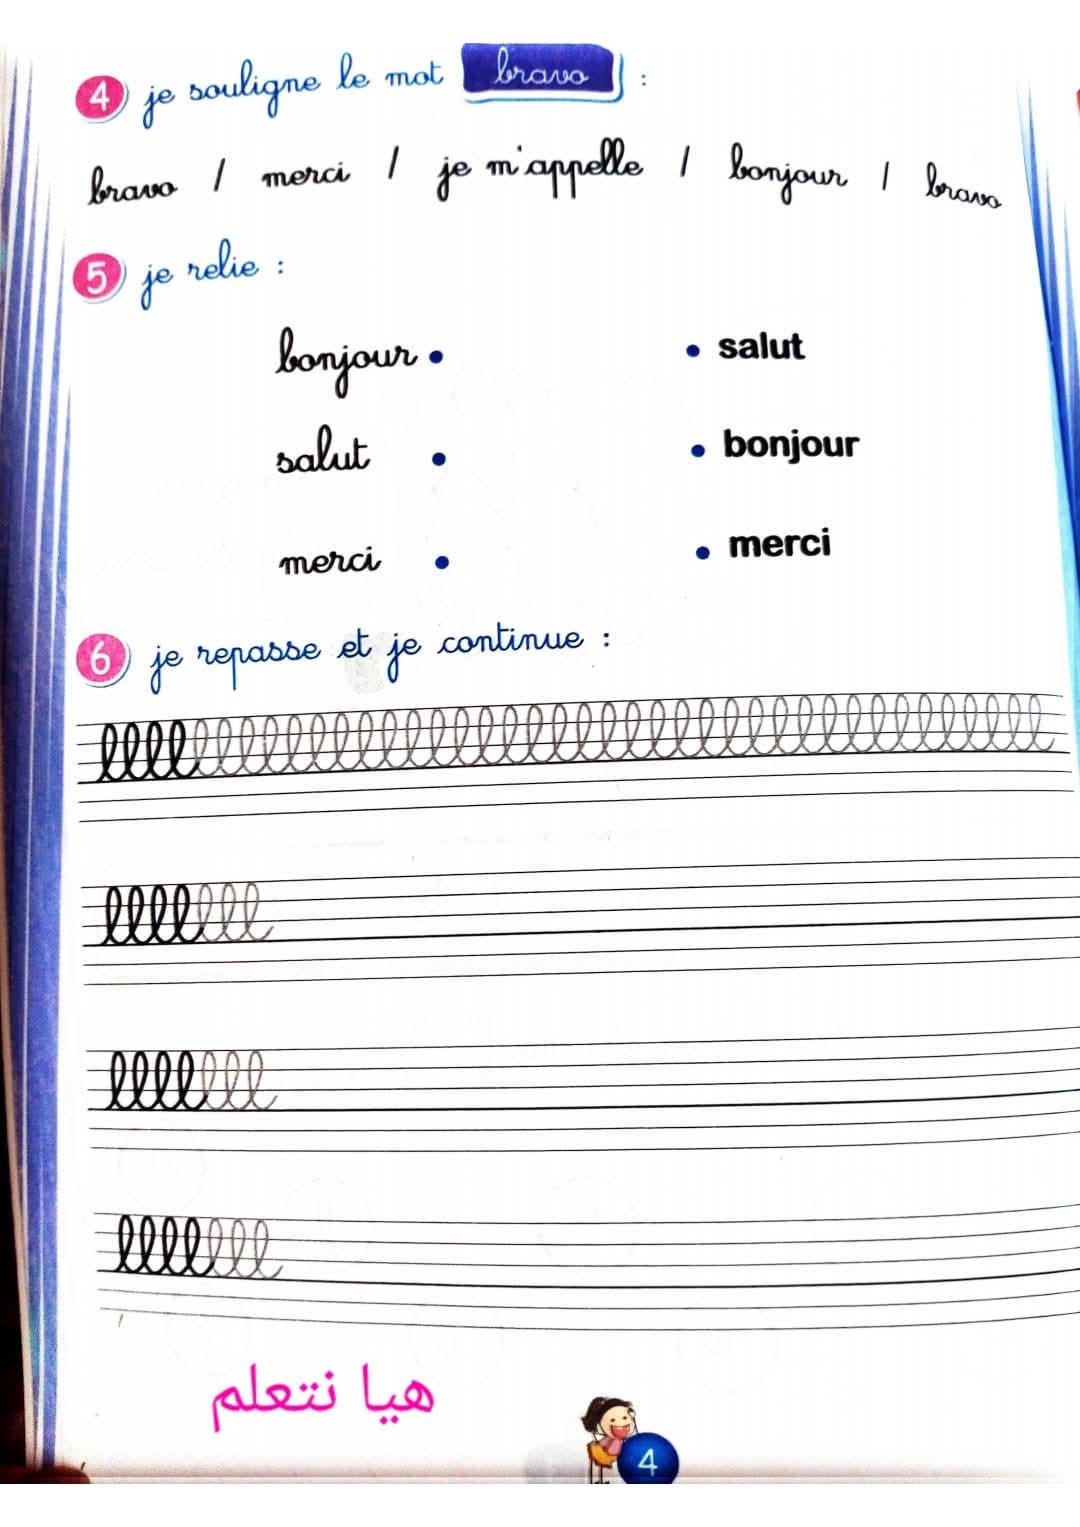 4 je souligne le mot bravo :
bravo / merci / je m'appelle / bonjour / bravo
5 je relie :
bonjour • • salut
salut • • bonjour
merci • • merci
6 je repasse et je continue :
llllllllllllllllllllllllllllllllllllllll
lllllll
lllllll
lllllll
هيا نتعلم
4